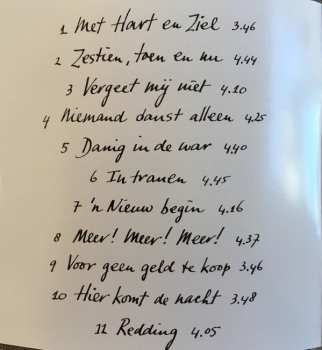 1 Met Hart en Ziel 3.46
2 Zestien, toen en nu 4.44
3 Vergeet mij niet 4.10
4 Niemand danst alleen 4.25
5 Danig in de war 4.40
6 In tranen 4.45
7 'n Nieuw begin 4.16
8 Meer! Meer! Meer! 4.37
9 Voor geen geld te koop 3.46
10 Hier komt de nacht 3.48
11 Redding 4.05